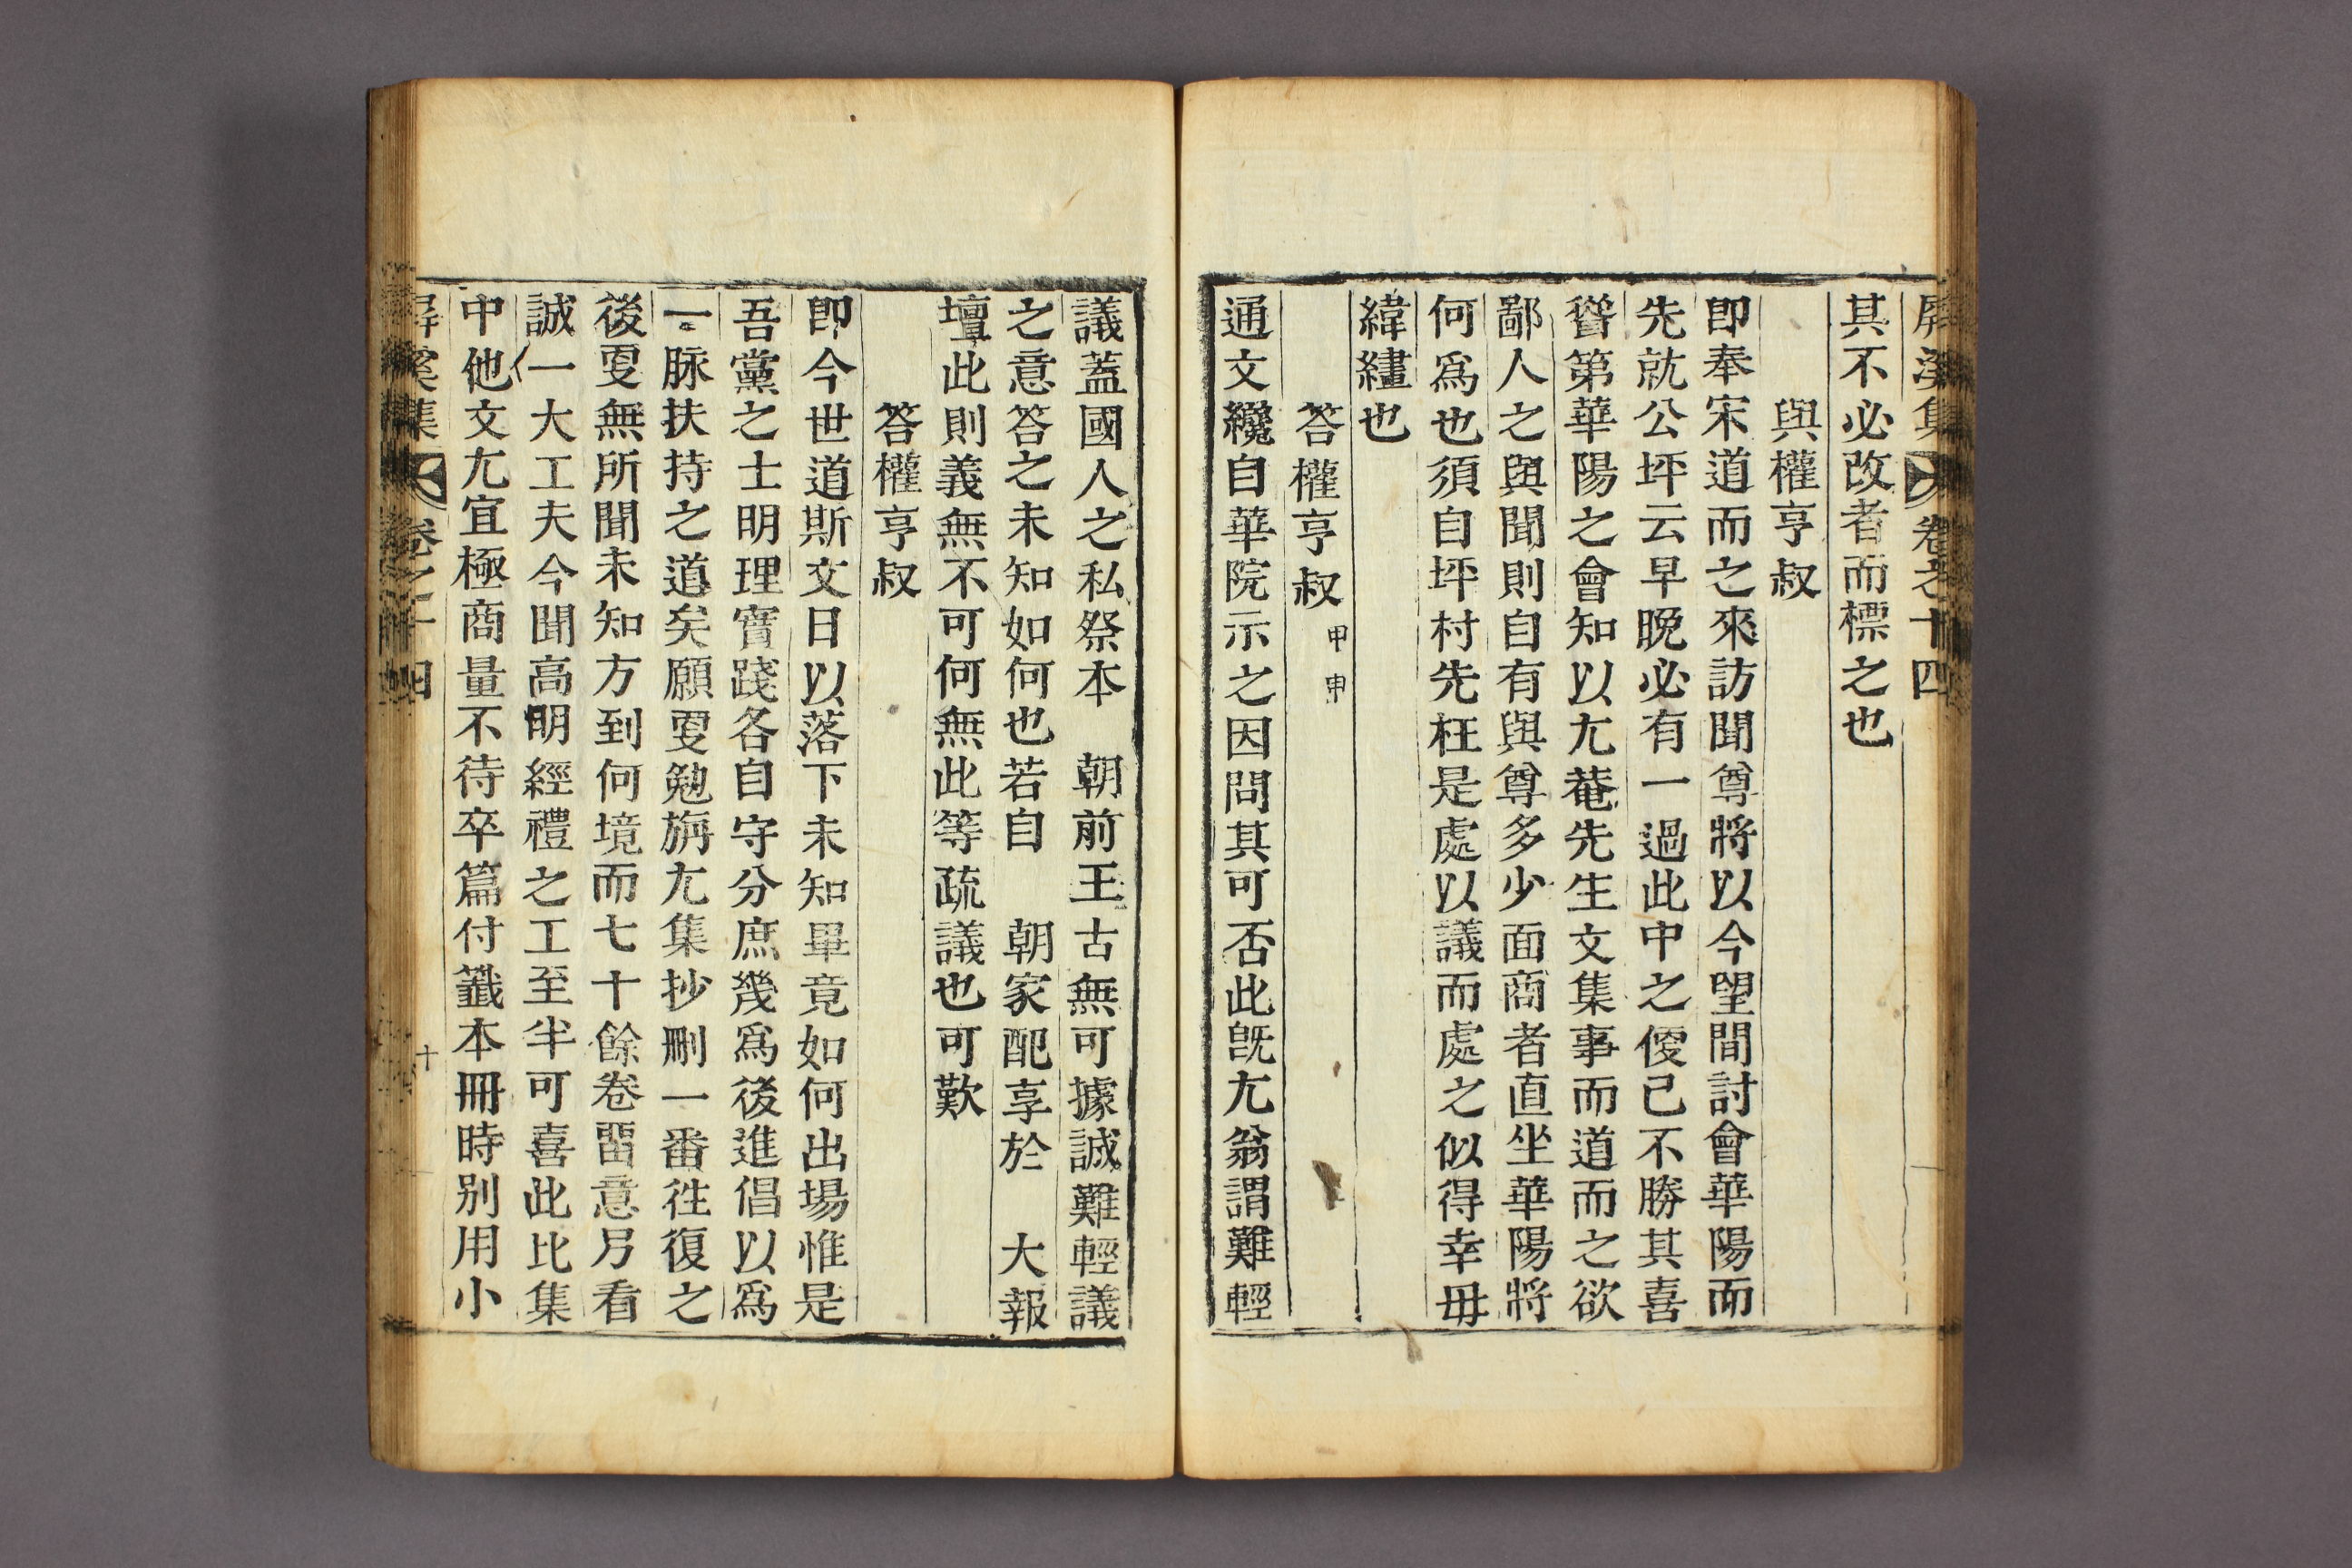 屏溪集 卷之十四
其不必改者而標之也
與權亨叔
卽奉宋道而之來訪聞尊將以今望間討會華陽而
先就公坪云早晩必有一過此中之便已不勝其喜
聳第華陽之會知以尤菴先生文集事而道而之欲
鄙人之與聞則自有與尊多少面商者直坐華陽將
何爲也須自坪村先枉是處以議而處之似得幸毋
緯繣也
答權亨叔 甲申
通文纔自華院示之因問其可否此旣尤翁謂難輕
議蓋國人之私祭本 朝前王古無可據誠難輕議
之意答之未知如何也若自 朝家配享於 大報
壇此則義無不可何無此等疏議也可歎
答權亨叔
卽今世道斯文日以落下未知畢竟如何出場惟是
吾黨之士明理實踐各自守分庶幾爲後進倡以爲
一脉扶持之道矣願更勉旃尤集抄刪一番徃復之
後更無所聞未知方到何境而七十餘卷留意乃看
誠一大工夫今聞高明經禮之工至半可喜此比集
中他文尤宜極商量不待卒篇付籤本冊時別用小
屏溪集 卷之十四 十